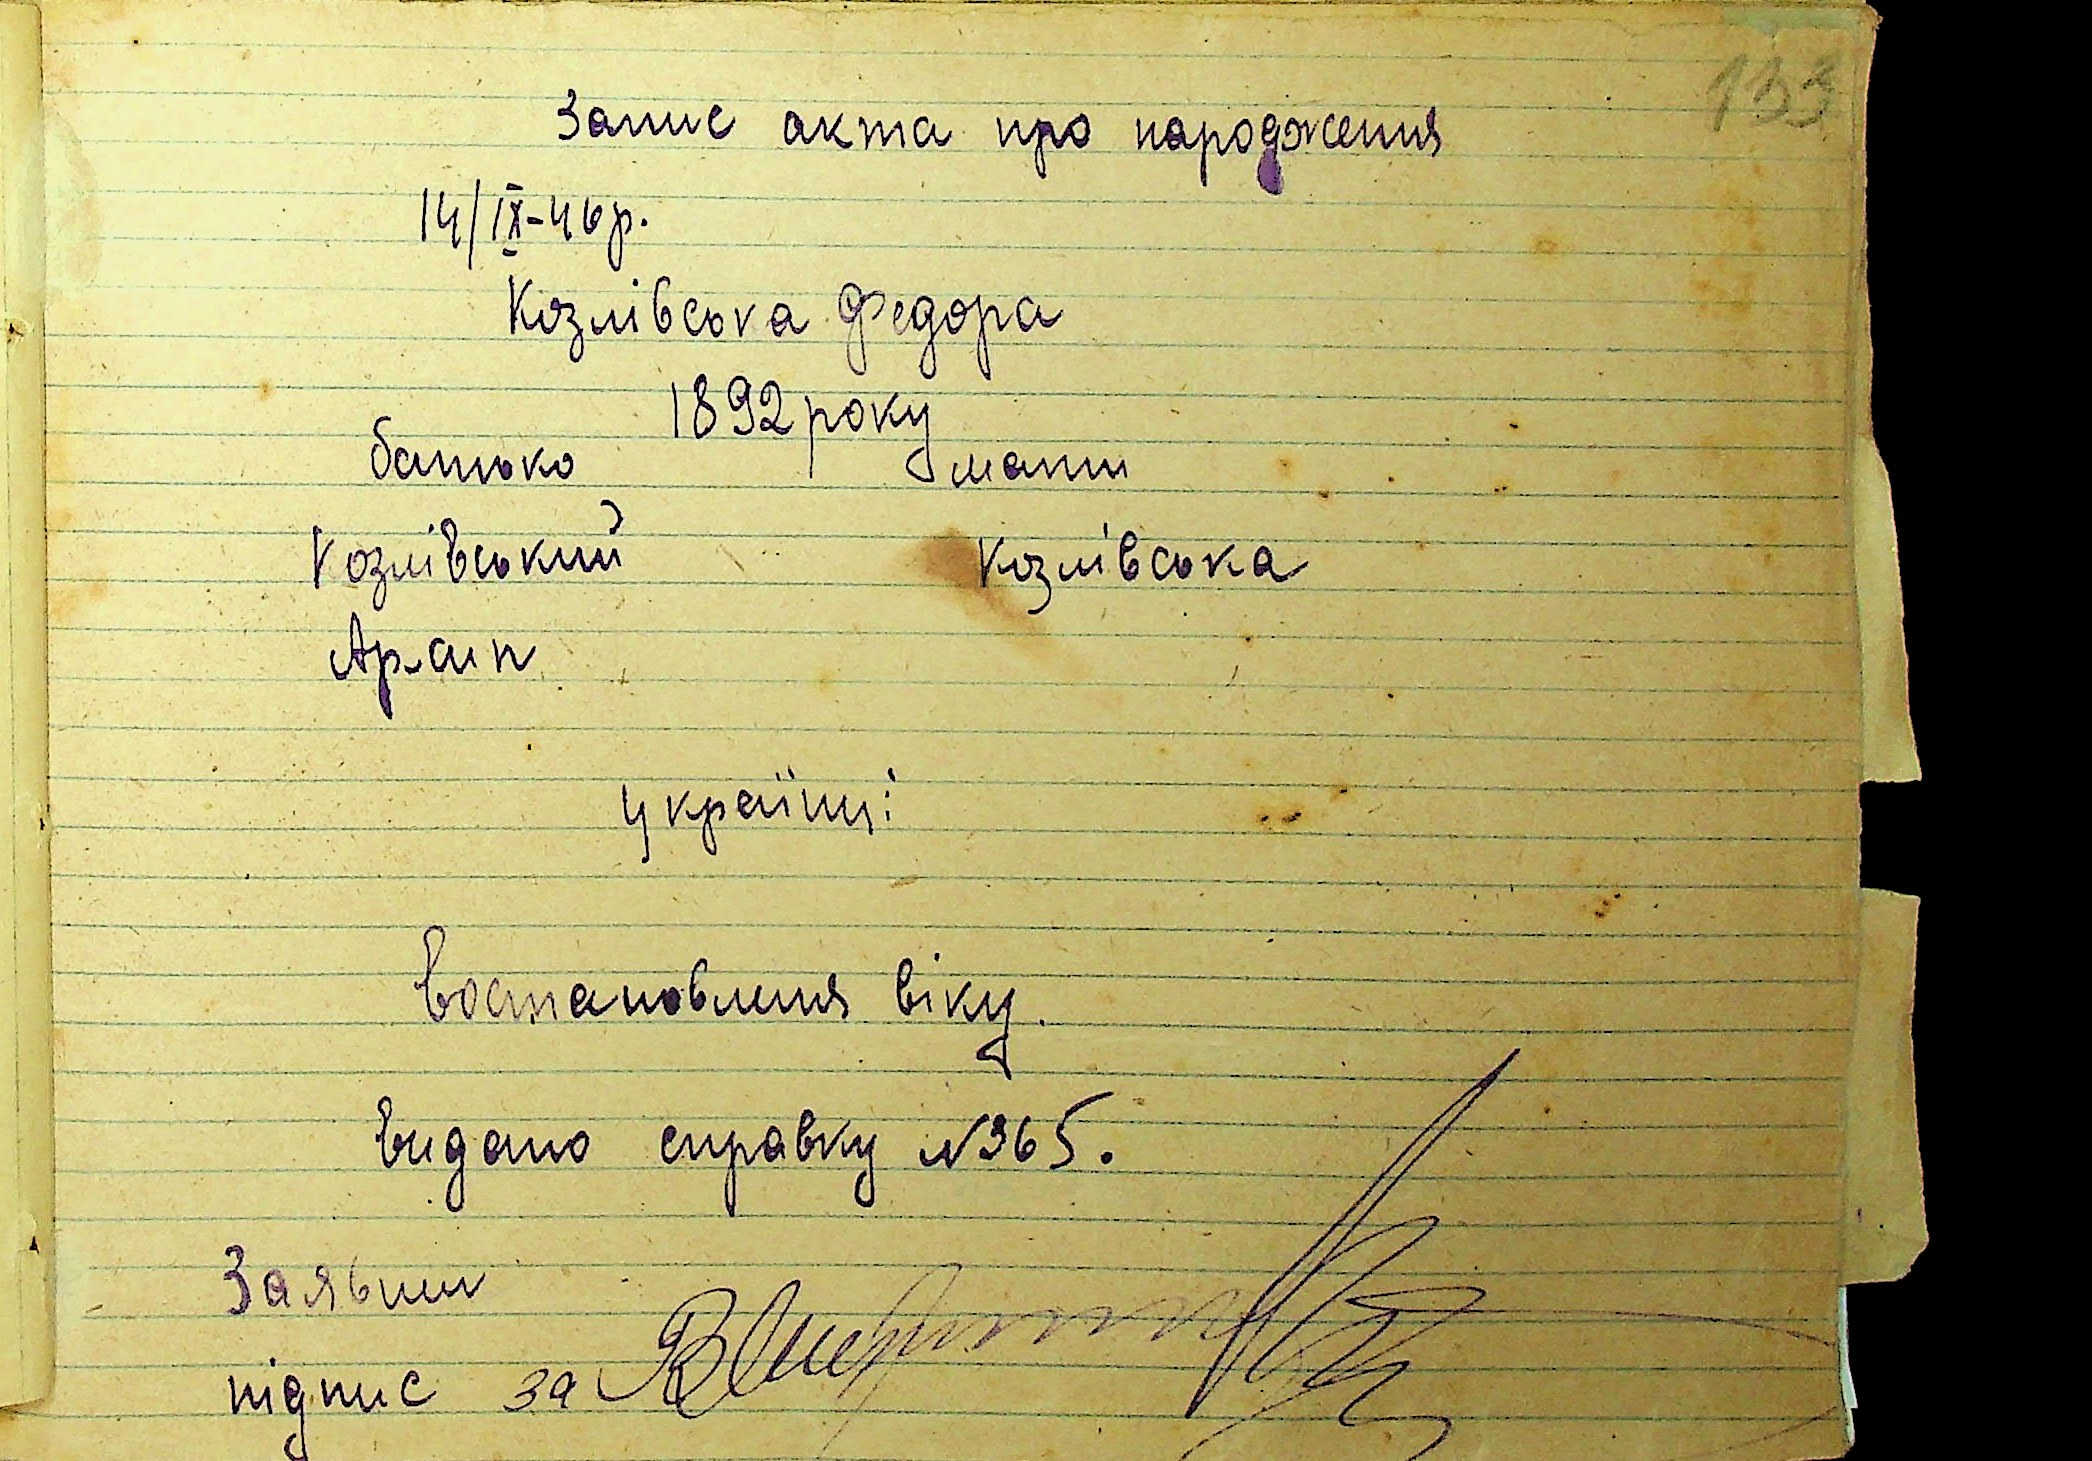 133
Запис акта про народження
14/IX-46р.
Козлівська Федора
1892 року
батько мати
Козлівський Козлівська
українці
Востановлення віку.
Видано справку №365.
Заявник
підпис за